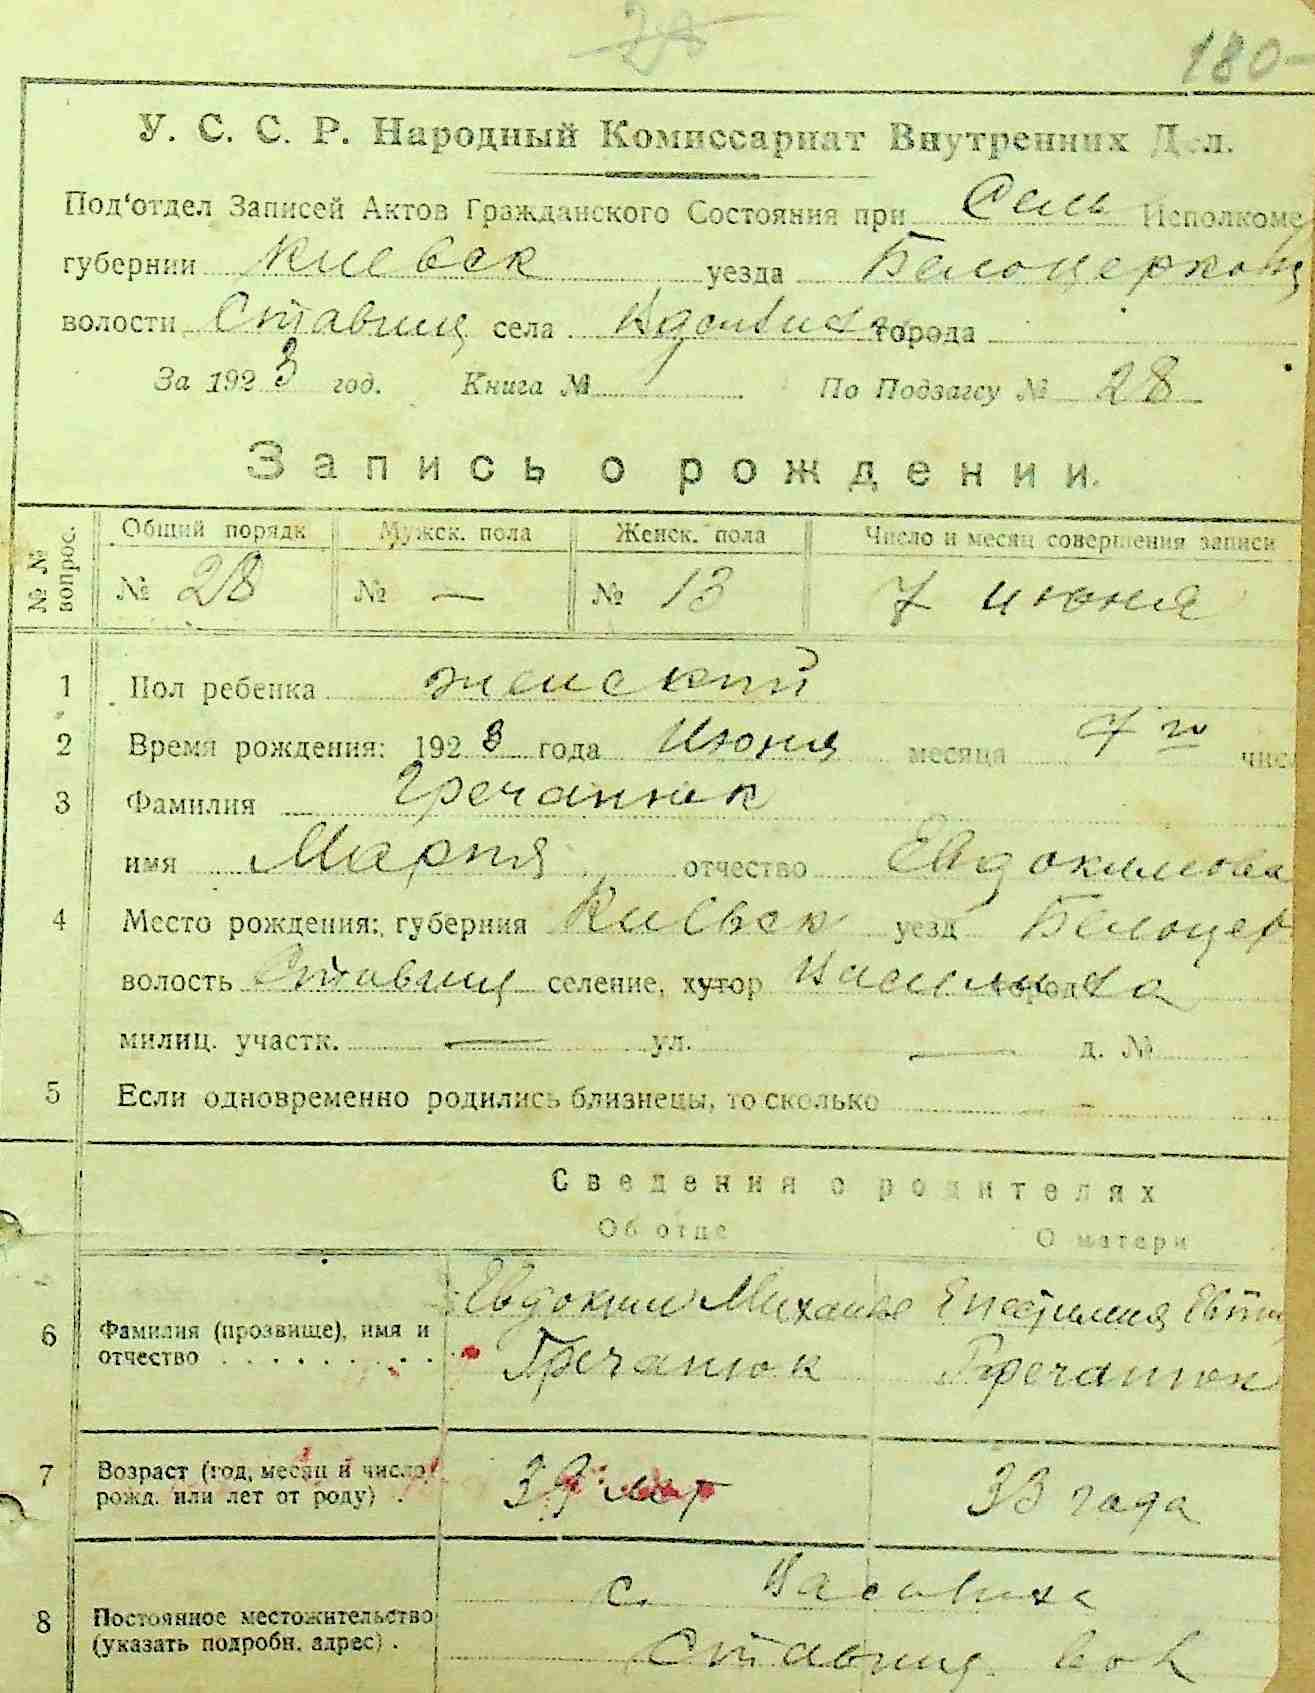 180-
У. С. С. Р. Народный Комиссариат Внутренних Дел.
Под'отдел Записей Актов Гражданского Состояния при Сель Исполкоме
губернии Киевск уезда Белоцерков
волости Ставищ села города
За 1923 год. Книга № По Подзагсу № 28
Запись о рождении.
№ № вопрос. Общий порядк Мужск. пола Женск. пола Число и месяц совершения записи
№ 28 № — № 13 7 июня
1 Пол ребенка женский
2 Время рождения: 1923 года Июня месяца 7 го числ
3 Фамилия Гречанюк
имя Мария отчество Евдокимова
4 Место рождения: губерния Киевск уезд Белоцер
волость Ставищ селение, хутор город
милиц. участк. — ул. — д. №
5 Если одновременно родились близнецы, то сколько -
Сведения о родителях
Об отце О матери
Евдоким Михайло
6 Фамилия (прозвище), имя и
отчество . . . . . . . . . Гречанюк Гречанюк
7 Возраст (год, месяц и число
рожд. или лет от роду) . 39 лет 33 года
с.
8 Постоянное местожительство
(указать подробн. адрес) . Ставищ. вол